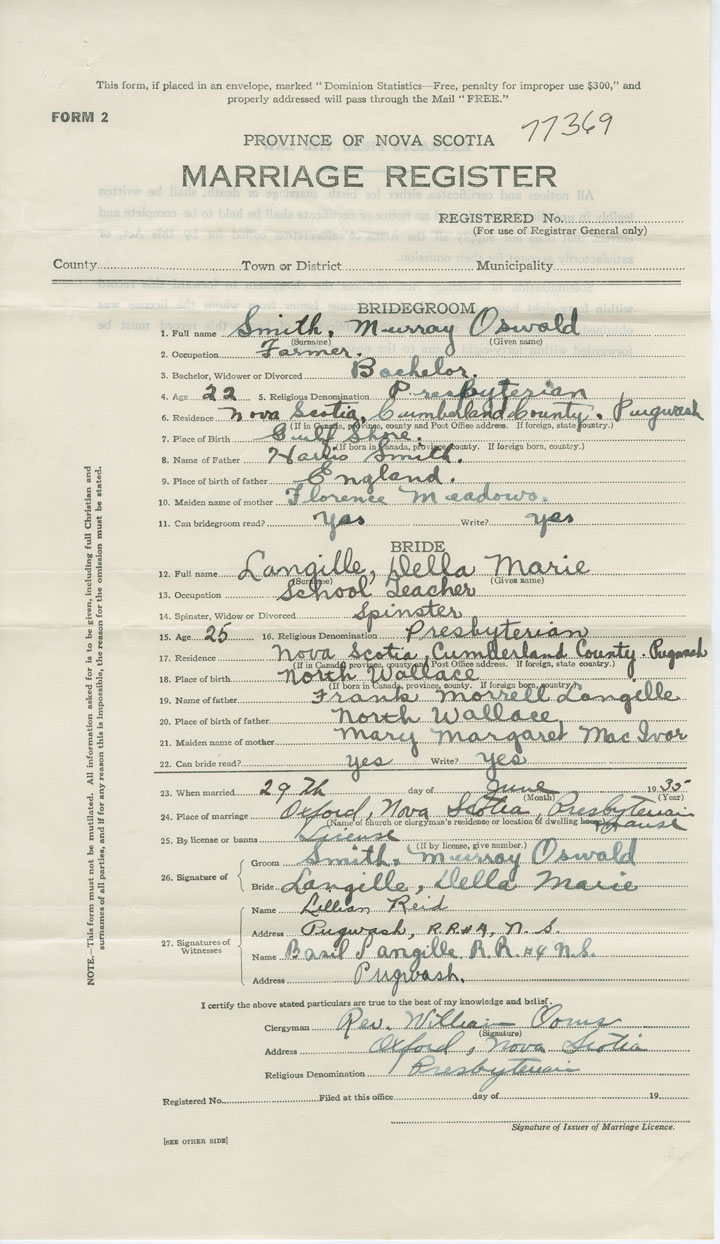 This form, if placed in an envelope, marked "Dominion Statistics—Free, penalty for improper use $300," and
properly addressed will pass through the Mail "FREE."
FORM 2
77369
PROVINCE OF NOVA SCOTIA
MARRIAGE REGISTER
REGISTERED No.
(For use of Registrar General only)
County Town or District Municipality
BRIDEGROOM
1. Full name Smith, Murray Oswald
(Surname) (Given name)
2. Occupation Farmer.
3. Bachelor, Widower or Divorced Bachelor.
4. Age 22 5. Religious Denomination Presbyterian
6. Residence Nova Scotia, Cumberland County. Pugwash
(If in Canada, province, county and Post Office address. If foreign, state country.)
7. Place of Birth Gulf Shore.
(If born in Canada, province, county. If foreign born, country.)
8. Name of Father Harris Smith.
9. Place of birth of father England.
10. Maiden name of mother Florence Meadows.
11. Can bridegroom read? yes Write? yes
BRIDE
12. Full name Langille, Della Marie
(Surname) (Given name)
13. Occupation School Teacher
14. Spinster, Widow or Divorced Spinster
15. Age 25 16. Religious Denomination Presbyterian
17. Residence Nova Scotia, Cumberland County. Pugwash
(If in Canada, province, county and Post Office address. If foreign, state country.)
18. Place of birth North Wallace
(If born in Canada, province, county. If foreign born, country.)
19. Name of father Frank Morrell Langille
20. Place of birth of father North Wallace
21. Maiden name of mother Mary Margaret MacIvor
22. Can bride read? yes Write? yes
23. When married 29th day of June 1935
(Month) (Year)
24. Place of marriage Oxford, Nova Scotia, Presbyterian
(Name of church or clergyman's residence or location of dwelling house) Manse
25. By license or banns License
(If by license, give number.)
26. Signature of
Groom Smith, Murray Oswald
Bride Langille, Della Marie
27. Signatures of Witnesses
Name Lillian Reid
Address Pugwash, R.R#4, N.S.
Name Basil Langille R.R.#4 N.S.
Address Pugwash.
I certify the above stated particulars are true to the best of my knowledge and belief.
Clergyman Rev. William Ooms
(Signature)
Address Oxford, Nova Scotia
Religious Denomination Presbyterian
Registered No. Filed at this office day of 19
Signature of Issuer of Marriage Licence.
[SEE OTHER SIDE]
NOTE.—This form must not be mutilated. All information asked for is to be given, including full Christian and
surnames of all parties, and if for any reason this is impossible, the reason for the omission must be stated.